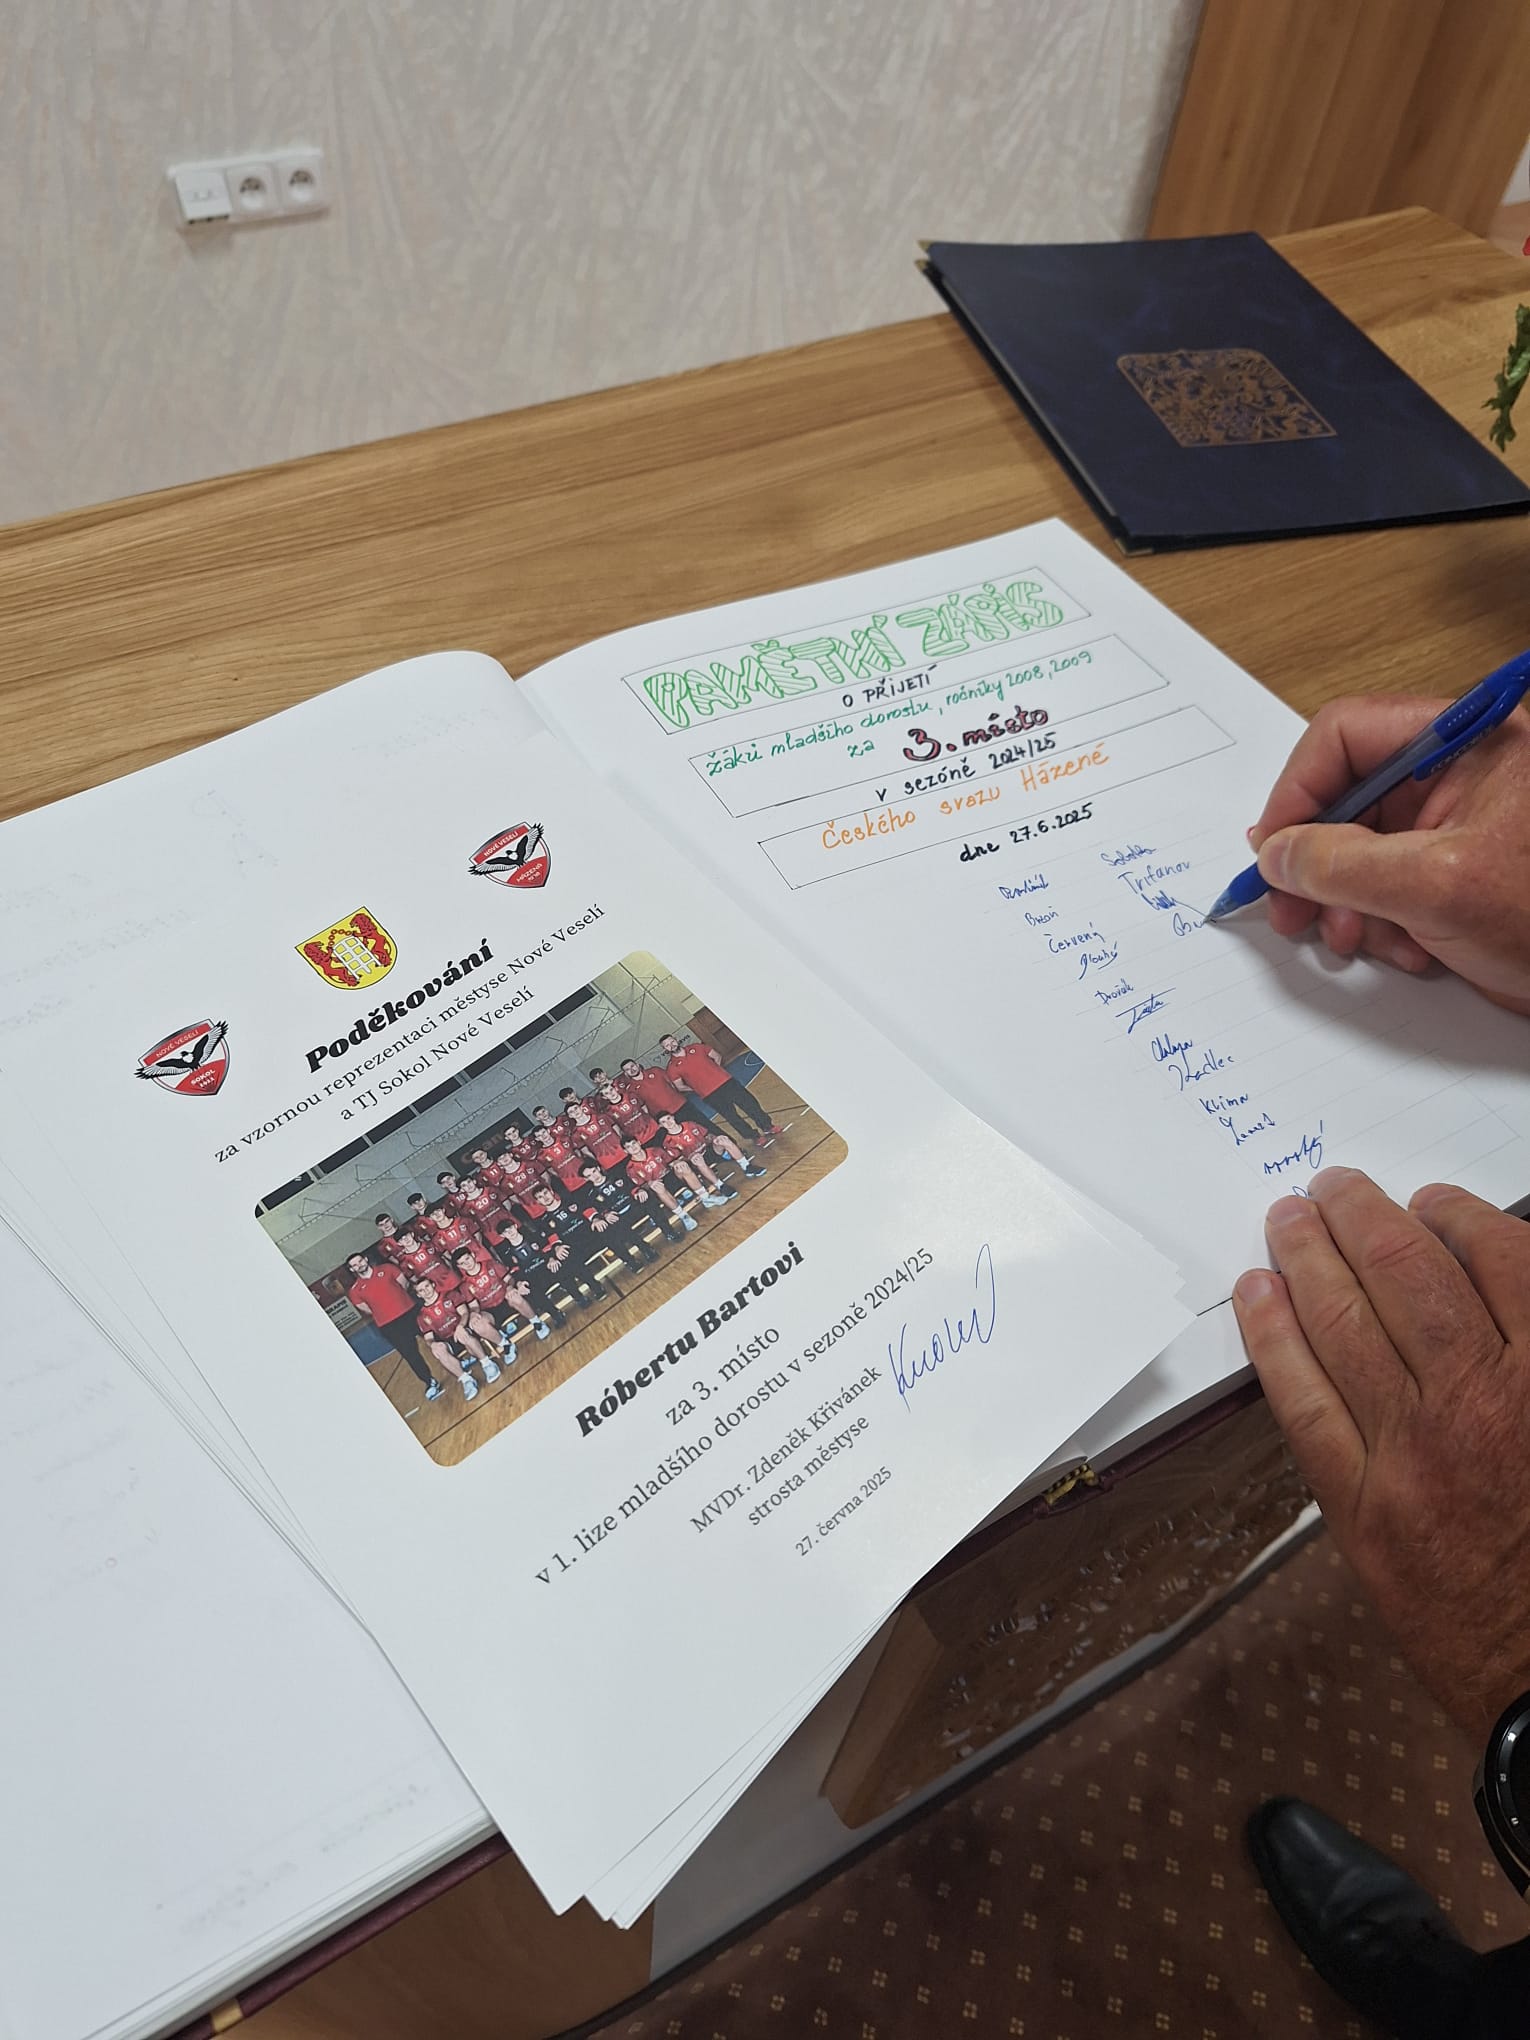 NOVÉ VESELÍ
HÁZENÁ
NOVÉ VESELÍ
SOKOL
Poděkování
za vzornou reprezentaci městyse Nové Veselí
a TJ Sokol Nové Veselí
Róbertu Bartovi
za 3. místo
v 1. lize mladšího dorostu v sezoně 2024/25
MVDr. Zdeněk Křivánek
strosta městyse
27. června 2025
PAMĚTNÍ ZÁPIS
O PŘIJETÍ
žáků mladšího dorostu, ročníky 2008, 2009
za 3. místo
v sezóně 2024/25
Českého svazu Házené
dne 27.6.2025
Červený
Dlouhý
Dvořák
Klíma
Trifanov